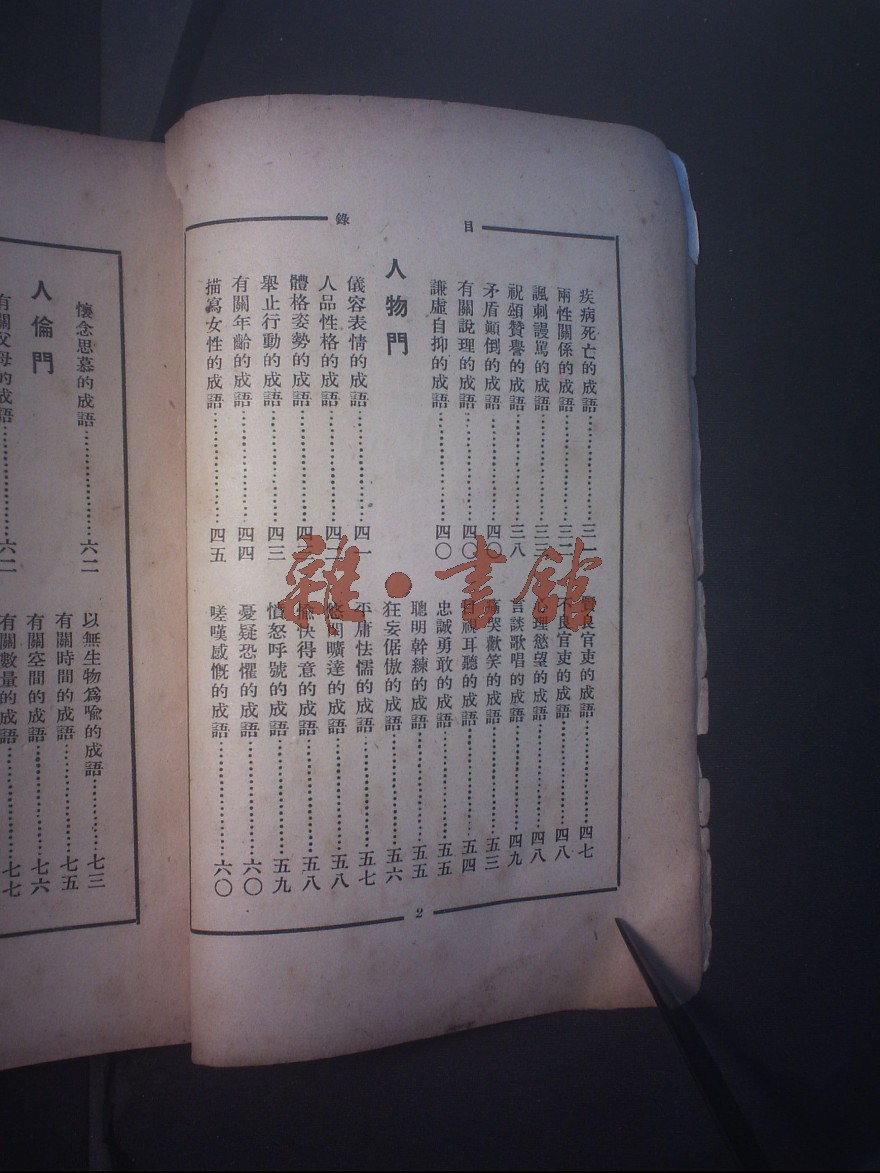 目錄
疾病死亡的成語…………三一
兩性關係的成語…………三二
諷刺謾罵的成語…………三三
祝頌贊譽的成語…………三八
矛盾顛倒的成語…………四〇
有關說理的成語…………四〇
謙虛自抑的成語…………四〇
人物門
儀容表情的成語…………四一
人品性格的成語…………四二
體格姿勢的成語…………四
舉止行動的成語…………四三
有關年齡的成語…………四四
描寫女性的成語…………四五
良官吏的成語…………四七
不良官吏的成語…………四八
心理慾望的成語…………四八
言談歌唱的成語…………四九
哭歡笑的成語…………五三
視耳聽的成語…………五四
忠誠勇敢的成語…………五五
聰明幹練的成語…………五五
狂妄倨傲的成語…………五六
平庸怯懦的成語…………五七
悠閑曠達的成語…………五八
愉快得意的成語…………五八
憤怒呼號的成語…………五九
憂疑恐懼的成語…………六〇
嗟嘆感慨的成語…………六〇
2
懷念思慕的成語…………六二
人倫門
有關父母的成語…………六二
以無生物爲喩的成語…………七三
有關時間的成語…………七五
有關空間的成語…………七六
有關數量的成語…………七七
雜·書館